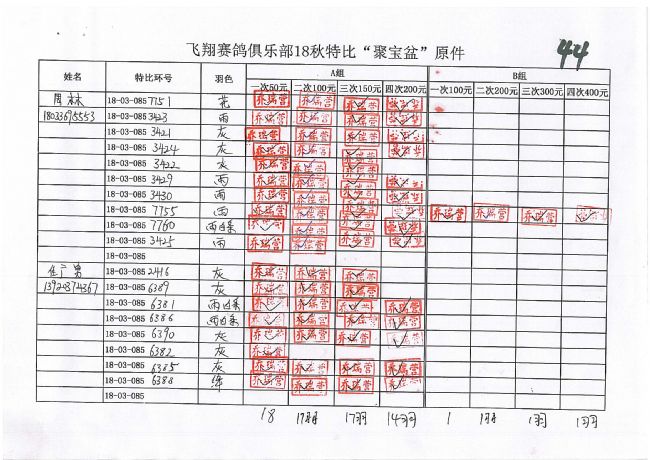 飞翔赛鸽俱乐部18秋特比“聚宝盆”原件
44
姓名 特比环号 羽色 A组 B组
一次50元 二次100元 三次150元 四次200元 一次100元 二次200元 三次300元 四次400元
周林 18-03-085 7751 花 乔瑞营 乔瑞营 乔瑞营
18-03-085 3423 雨 乔瑞营 乔瑞营 乔瑞营
18-03-085 3421 灰 乔瑞营 乔瑞营 乔瑞营
18-03-085 3424 灰 乔瑞营 乔瑞营 乔瑞营
18-03-085 3422 灰 乔瑞营 乔瑞营 乔瑞营
18-03-085 3429 雨 乔瑞营 乔瑞营 乔瑞营
18-03-085 3430 雨 乔瑞营 乔瑞营 乔瑞营
18-03-085 7755 乔瑞营 乔瑞营 乔瑞营 乔瑞营 乔瑞营 乔瑞营
18-03-085 7760 雨白条 乔瑞营 乔瑞营 乔瑞营
18-03-085 3425 雨 乔瑞营 乔瑞营 乔瑞营
18-03-085
18-03-085 2416 灰 乔瑞营 乔瑞营 乔瑞营
18-03-085 6389 灰 乔瑞营 乔瑞营 乔瑞营
18-03-085 6381 雨白条 乔瑞营 乔瑞营 乔瑞营 乔瑞营
18-03-085 6386 雨白条 乔瑞营 乔瑞营 乔瑞营 乔瑞营
18-03-085 6390 灰 乔瑞营 乔瑞营 乔瑞营 乔瑞营
18-03-085 6382 灰 乔瑞营
18-03-085 6385 灰 乔瑞营 乔瑞营 乔瑞营 乔瑞营
18-03-085 6388 绛 乔瑞营 乔瑞营 乔瑞营 乔瑞营
18-03-085
18 17羽 17羽 14羽 1 1羽 1羽 1羽